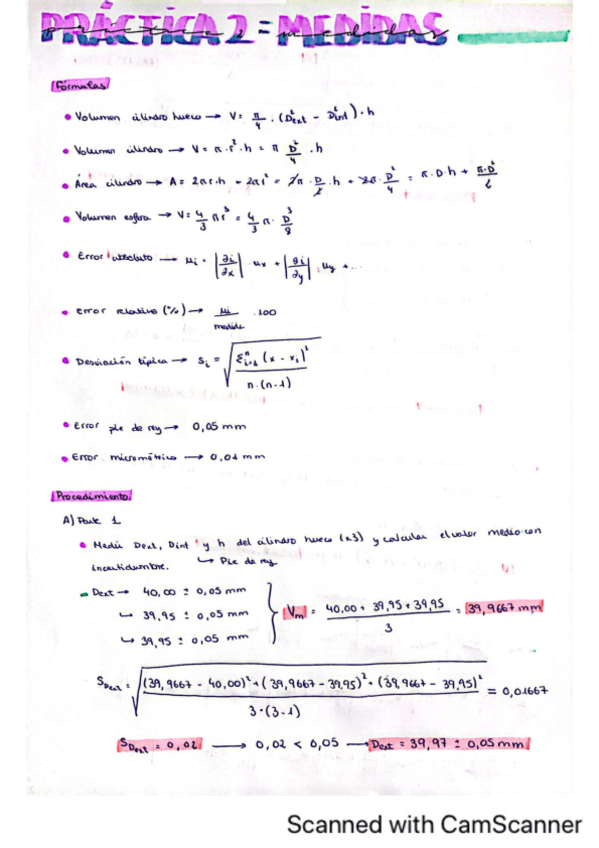 PRÁCTICA 2 = MEDIDAS
Fórmulas
• Volumen cilindro hueco → V = π/4 · (D²ext - D²int) · h
• Volumen cilindro → V = π · r² · h = π D²/4 · h
• Área cilindro → A = 2πr·h + 2πr² = 2π · D/2 · h + 2π · D²/4 = π · D · h + π·D²/2
• Volumen esfera → V = 4/3 πr³ = 4/3 π · D³/8
• Error absoluto → μi = |∂i/∂x| · μx + |∂i/∂y| · μy + ...
• error relativo (%) → μi/medida · 100
• Desviación típica → Si = √(Σⁿi=1 (x - xi)² / n·(n-1))
• Error pie de rey → 0,05 mm
• Error micrométrico → 0,01 mm
Procedimiento
A) Parte 1
• Medir Dext, Dint y h del cilindro hueco (x3) y calcular el valor medio con
incertidumbre. ↳ Pie de rey
Dext → 40,00 ± 0,05 mm
↳ 39,95 ± 0,05 mm
↳ 39,95 ± 0,05 mm
Vm = (40,00 + 39,95 + 39,95)/3 = 39,9667 mm
SDext = √((39,9667 - 40,00)² + (39,9667 - 39,95)² + (39,9667 - 39,95)² / 3·(3-1)) = 0,01667
SDext = 0,02 → 0,02 < 0,05 → Dext = 39,97 ± 0,05 mm
Scanned with CamScanner